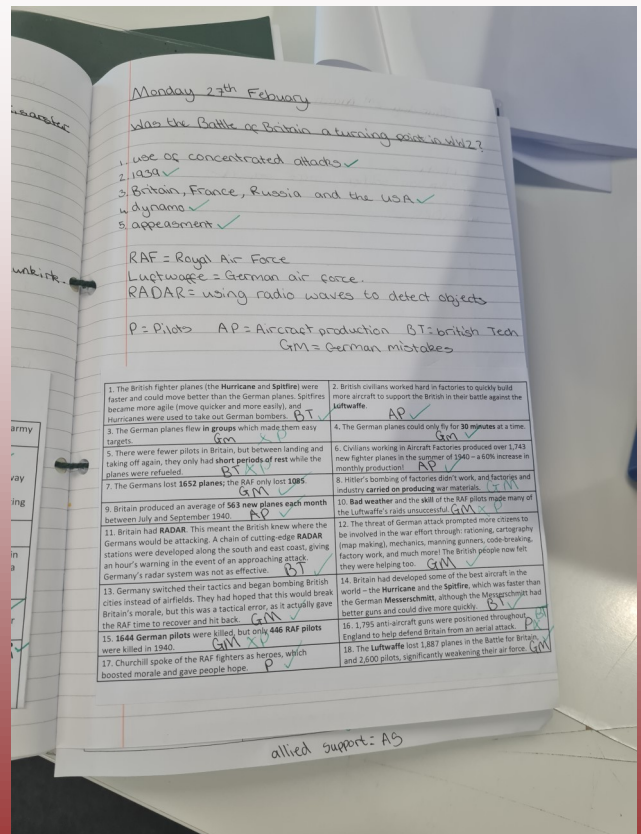 Monday 27th Febuary
Was the Battle of Britain a turning point in WW2?
1. use of concentrated attacks ✓
2. 1939 ✓
3. Britain, France, Russia and the USA ✓
4. dynamo ✓
5. appeasment ✓
RAF = Royal Air Force
Luftwaffe = German air force.
RADAR = using radio waves to detect objects
P = Pilots AP = Aircraft production BT = british Tech
GM = German mistakes
1. The British fighter planes (the Hurricane and Spitfire) were
faster and could move better than the German planes. Spitfires
became more agile (move quicker and more easily), and
Hurricanes were used to take out German bombers. BT ✓
2. British civilians worked hard in factories to quickly build
more aircraft to support the British in their battle against the
Luftwaffe.
AP ✓
3. The German planes flew in groups which made them easy
targets. GM x P
4. The German planes could only fly for 30 minutes at a time.
GM ✓
5. There were fewer pilots in Britain, but between landing and
taking off again, they only had short periods of rest while the
planes were refueled. BT x P
6. Civilians working in Aircraft Factories produced over 1,743
new fighter planes in the summer of 1940 – a 60% increase in
monthly production! AP ✓
7. The Germans lost 1652 planes; the RAF only lost 1085.
GM ✓
8. Hitler's bombing of factories didn't work, and factories and
industry carried on producing war materials. GM
9. Britain produced an average of 563 new planes each month
between July and September 1940. AP ✓
10. Bad weather and the skill of the RAF pilots made many of
the Luftwaffe's raids unsuccessful. GM x P
11. Britain had RADAR. This meant the British knew where the
Germans would be attacking. A chain of cutting-edge RADAR
stations were developed along the south and east coast, giving
an hour's warning in the event of an approaching attack.
Germany's radar system was not as effective. BT ✓
12. The threat of German attack prompted more citizens to
be involved in the war effort through: rationing, cartography
(map making), mechanics, manning gunners, code-breaking,
factory work, and much more! The British people now felt
they were helping too. GM ✓
13. Germany switched their tactics and began bombing British
cities instead of airfields. They had hoped that this would break
Britain's morale, but this was a tactical error, as it actually gave
the RAF time to recover and hit back. GM ✓
14. Britain had developed some of the best aircraft in the
world – the Hurricane and the Spitfire, which was faster than
the German Messerschmitt, although the Messerschmitt had
better guns and could dive more quickly. BT
15. 1644 German pilots were killed, but only 446 RAF pilots
were killed in 1940. GM x P
16. 1,795 anti-aircraft guns were positioned throughout
England to help defend Britain from an aerial attack. P
17. Churchill spoke of the RAF fighters as heroes, which
boosted morale and gave people hope. P ✓
18. The Luftwaffe lost 1,887 planes in the Battle for Britain,
and 2,600 pilots, significantly weakening their air force. GM
allied support = AS
unkirk.
army